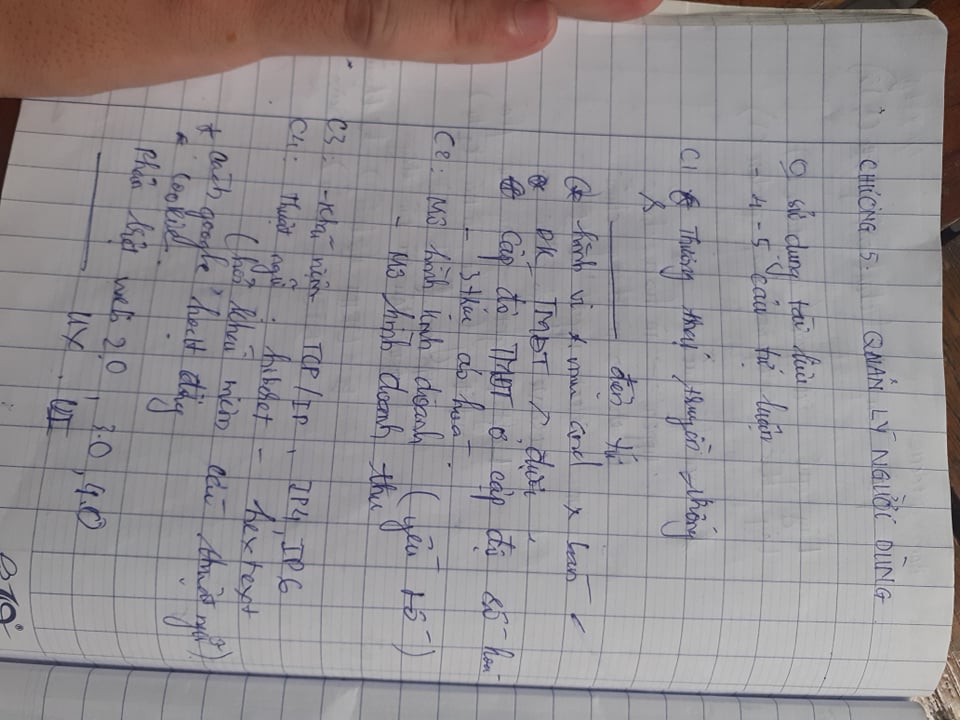 CHƯƠNG 5. QUẢN LÝ NGƯỜI DÙNG
sử dụng tài liệu
- 4-5 câu tự luận
C1 Thương mại truyền thống
——— điện tử
hình vi mua and x bán
ĐK TMĐT dưới
Cấp độ TMĐT ở cấp độ số hoá
- 3 hoá
C2: Mô hình kinh doanh (yếu tố)
- Mô hình doanh thu
C3: - Khái niệm TCP/IP, IP4, IP6
C4: Thuật ngữ : - hextext
(hỏi khái niệm các thuật ngữ)
+ cách google hoạt động
cookie.
Phân biệt web 2.0, 3.0, 4.0
——— UX . UI